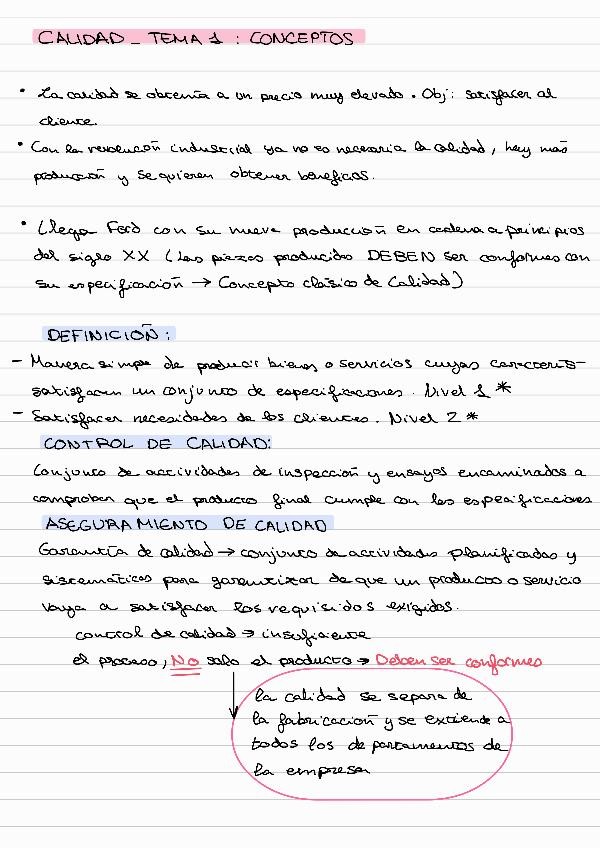 CALIDAD - TEMA 1 : CONCEPTOS
• La calidad se obtenía a un precio muy elevado. Obj: satisfacer al
cliente.
• Con la revolución industrial ya no es necesaria la calidad, hay más
producción y se quieren obtener beneficios.
• Llega Ford con su nueva producción en cadena a principios
del siglo XX (Las piezas producidas DEBEN ser conformes con
su especificación → Concepto clásico de Calidad)
DEFINICIÓN:
- Manera simple de producir bienes o servicios cuyas caracterís-
satisfacen un conjunto de especificaciones. Nivel 1 *
- Satisfacer necesidades de los clientes. Nivel 2 *
CONTROL DE CALIDAD:
Conjunto de actividades de inspección y ensayos encaminados a
comprobar que el producto final cumple con las especificaciones
ASEGURAMIENTO DE CALIDAD
Garantía de calidad → conjunto de actividades planificadas y
sistemáticas para garantizar de que un producto o servicio
vaya a satisfacer los requisidos exigidos.
control de calidad → insuficiente
el proceso, NO solo el producto → Deben ser conformes
la calidad se separa de
la fabricación y se extiende a
todos los departamentos de
la empresa